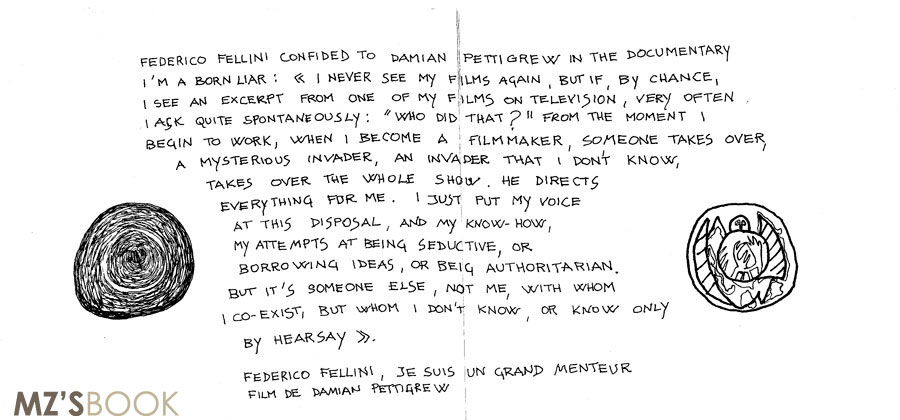 FEDERICO FELLINI CONFIDED TO DAMIAN PETTIGREW IN THE DOCUMENTARY
I'M A BORN LIAR : « I NEVER SEE MY FILMS AGAIN, BUT IF, BY CHANCE,
I SEE AN EXCERPT FROM ONE OF MY FILMS ON TELEVISION, VERY OFTEN
I ASK QUITE SPONTANEOUSLY: "WHO DID THAT?" FROM THE MOMENT I
BEGIN TO WORK, WHEN I BECOME A FILMMAKER, SOMEONE TAKES OVER,
A MYSTERIOUS INVADER, AN INVADER THAT I DON'T KNOW,
TAKES OVER THE WHOLE SHOW. HE DIRECTS
EVERYTHING FOR ME. I JUST PUT MY VOICE
AT THIS DISPOSAL, AND MY KNOW-HOW,
MY ATTEMPTS AT BEING SEDUCTIVE, OR
BORROWING IDEAS, OR BEIG AUTHORITARIAN.
BUT IT'S SOMEONE ELSE, NOT ME, WITH WHOM
I CO-EXIST, BUT WHOM I DON'T KNOW, OR KNOW ONLY
BY HEARSAY ».
FEDERICO FELLINI, JE SUIS UN GRAND MENTEUR
FILM DE DAMIAN PETTIGREW
MZ'SBOOK